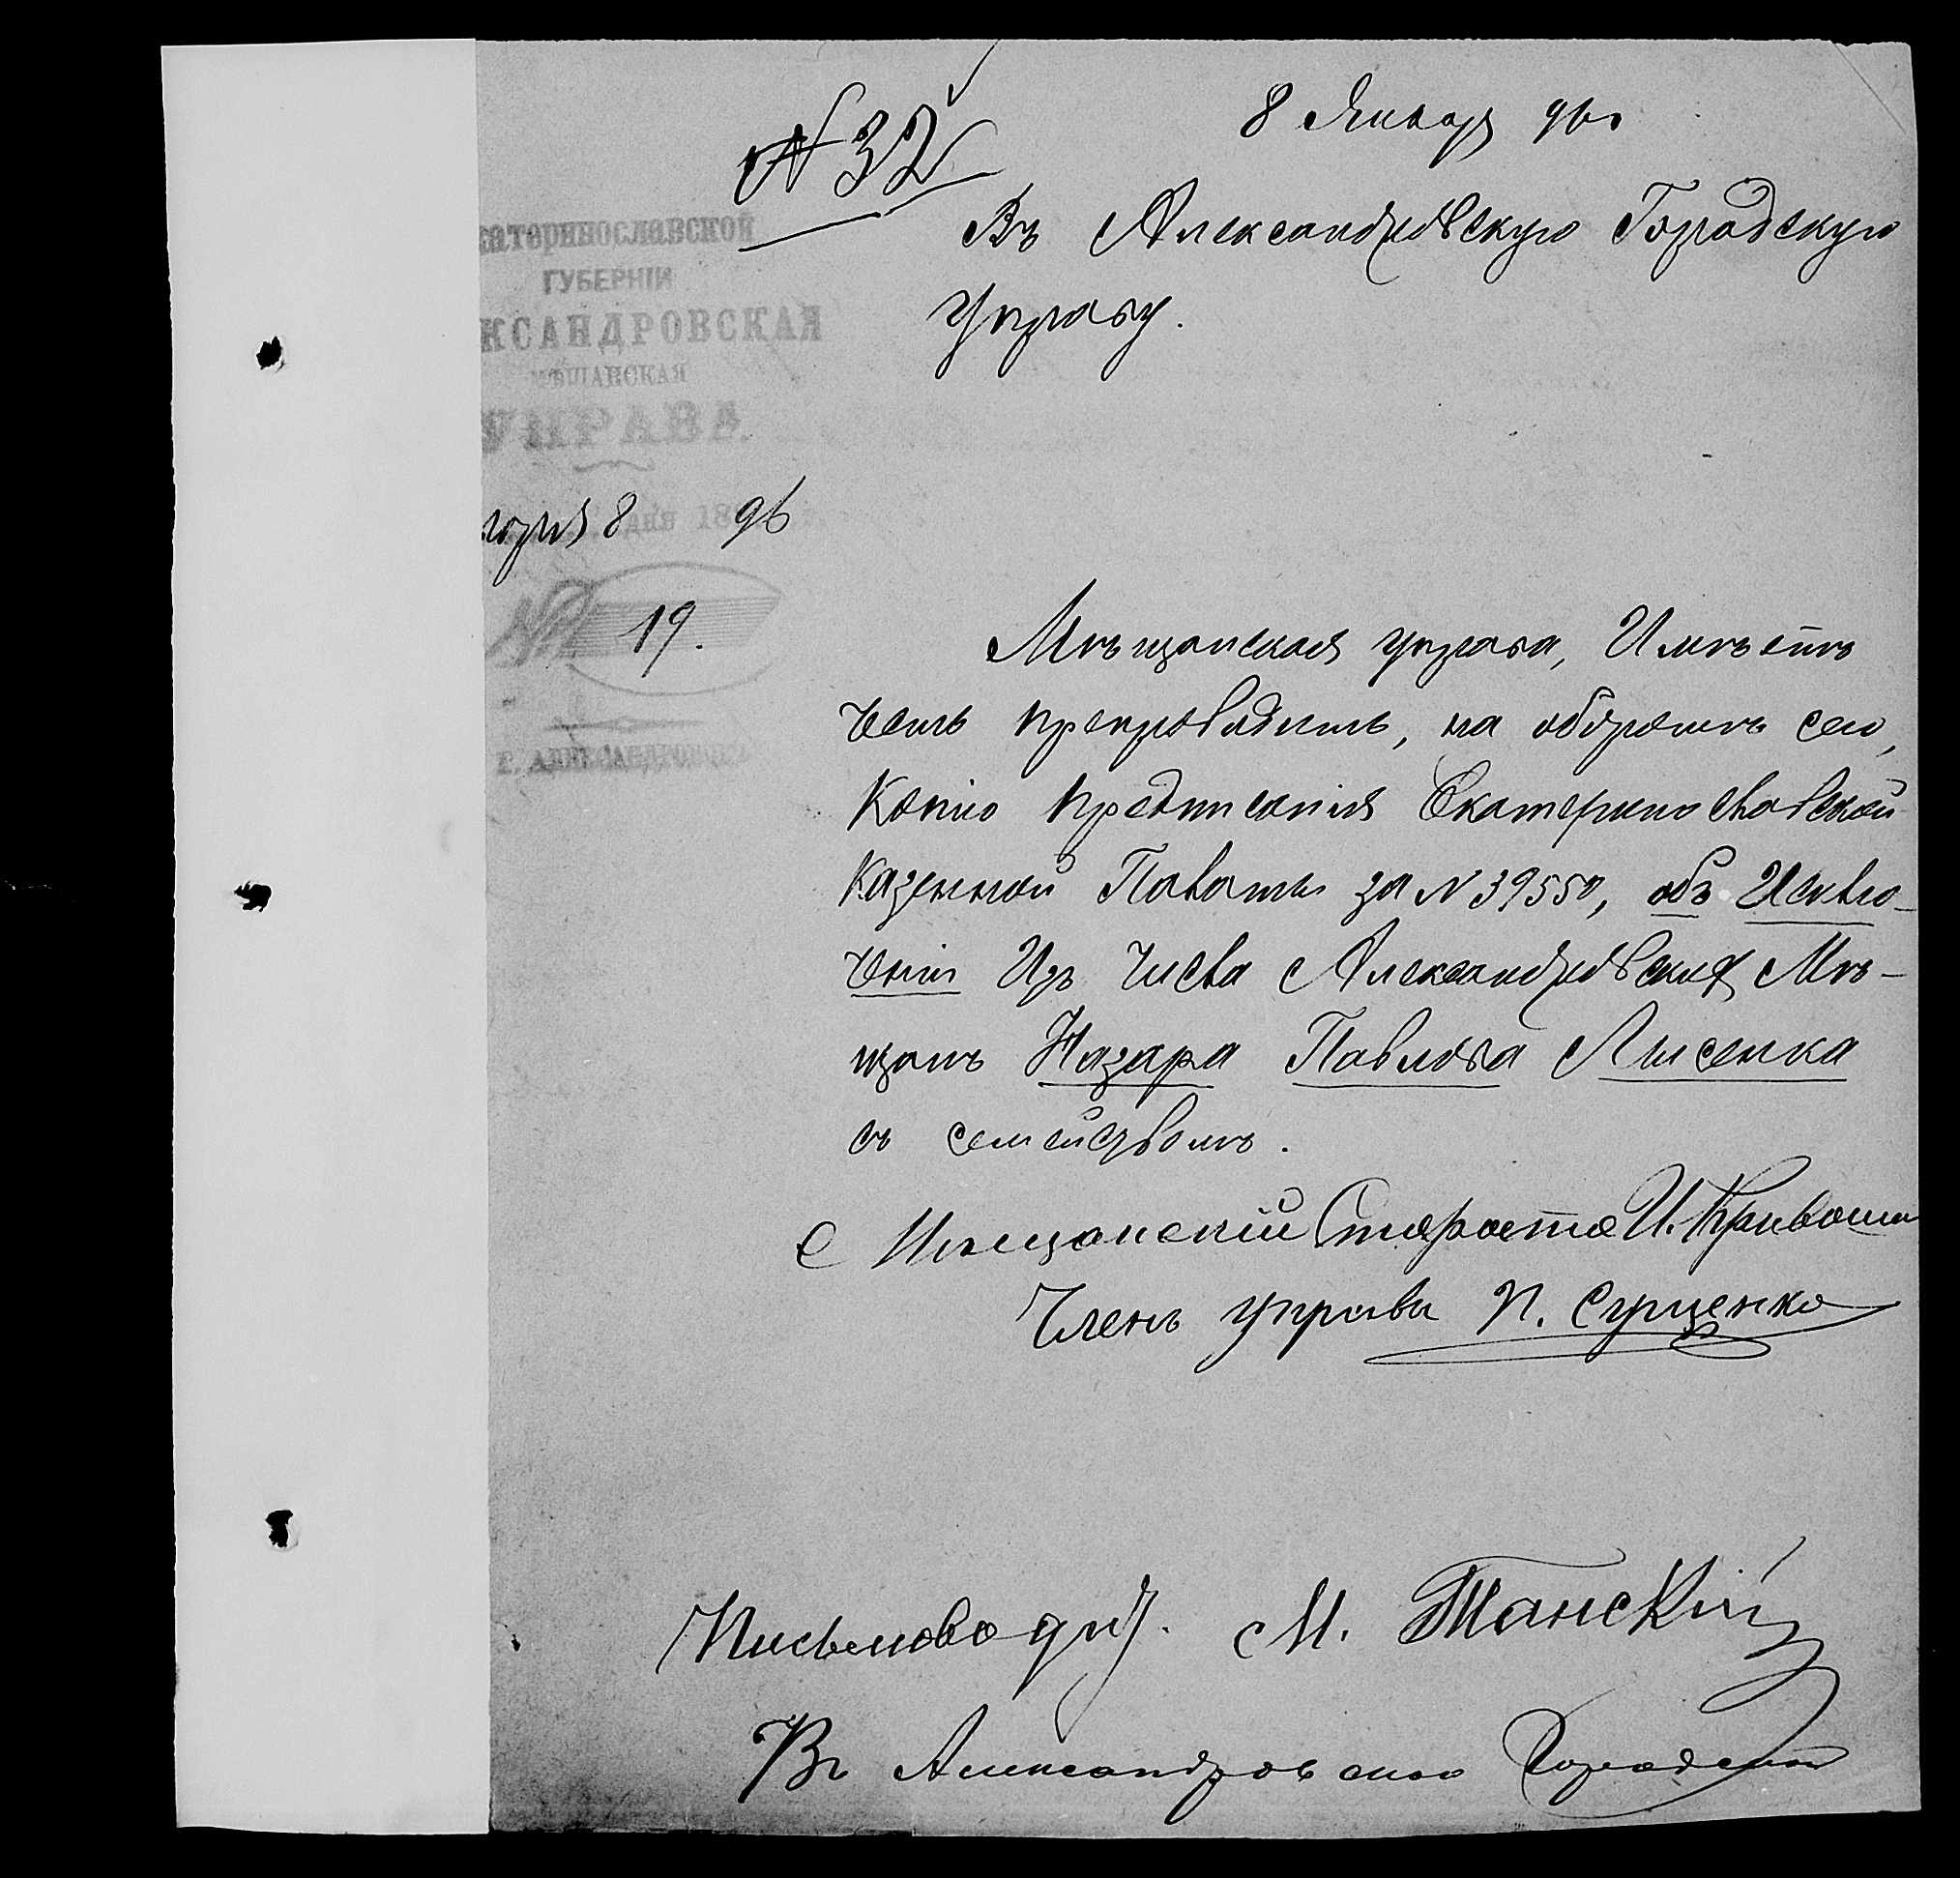 8 Января 96 г
№ 32
Въ Александровскую Городскую
Управу.
катеринославской
ГУБЕРНІИ
КСАНДРОВСКАЯ
МѢЩАНСКАЯ
УПРАВА.
наря 8 дня 189 96
№ 19.
Г. АЛЕКСАНДРОВСКЪ
Мѣщанская управа, Имѣетъ
честь препроводить, на оборотѣ сего,
Копію предписанія Екатеринославской
Казенной Палаты за N 39550, объ Исклю-
ченіи Изъ числа Александровскихъ Мѣ-
щанъ Назара Павлова Лисенка
съ семействомъ.
Мѣщанскій Староста И. Кривоши
Членъ управы П. Сущенко
Письмоводит. М. Танскій
Въ Александровскую Городскую